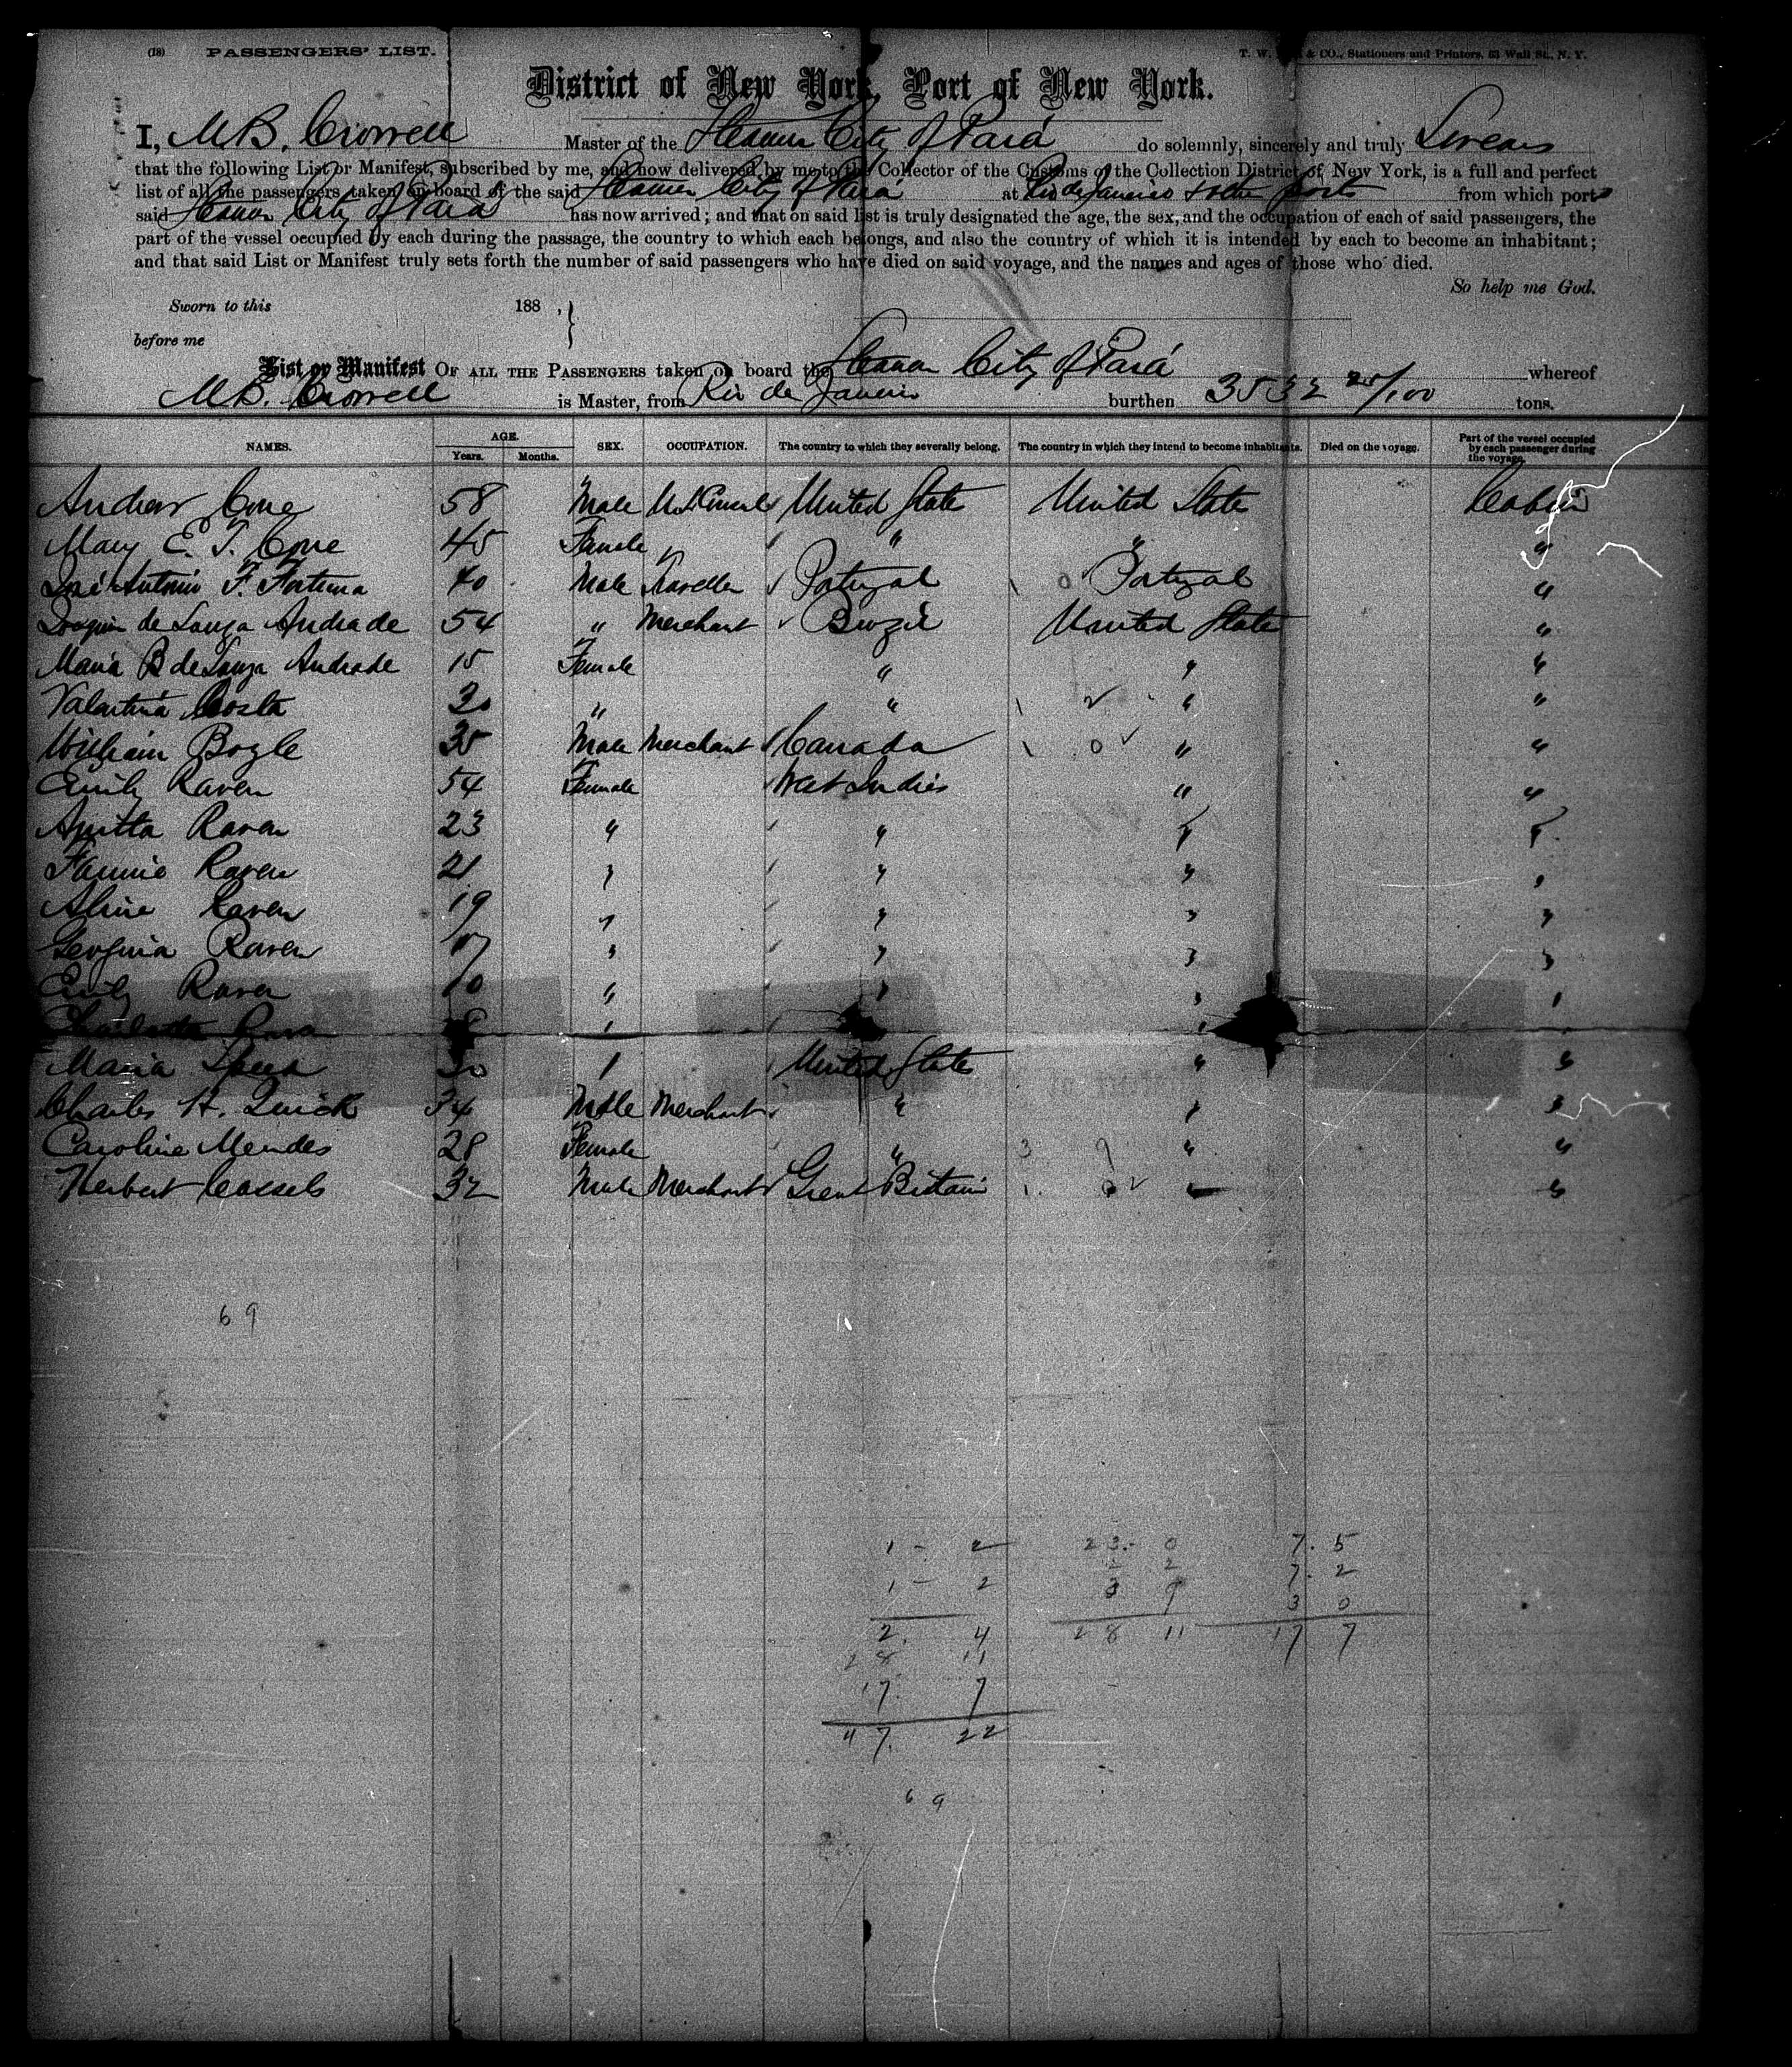 (18) PASSENGERS' LIST. T. W. & CO., Stationers and Printers, 53 Wall St., N. Y.
District of New York, Port of New York.
I, M B. Crowell Master of the Steamer City of Pará do solemnly, sincerely and truly Swear
that the following List or Manifest, subscribed by me, and now delivered by me to the Collector of the Customs of the Collection District of New York, is a full and perfect
list of all the passengers taken on board of the said Steamer City of Pará at Rio de Janeiro & other ports from which port
said Steamer City of Pará has now arrived; and that on said list is truly designated the age, the sex, and the occupation of each of said passengers, the
part of the vessel occupied by each during the passage, the country to which each belongs, and also the country of which it is intended by each to become an inhabitant;
and that said List or Manifest truly sets forth the number of said passengers who have died on said voyage, and the names and ages of those who died.
So help me God.
Sworn to this 188 ,
before me
List or Manifest OF ALL THE PASSENGERS taken on board the Steamer City of Pará whereof
M B. Crowell is Master, from Rio de Janeiro burthen 3532 25/100 tons.
NAMES. AGE. Years. Months. SEX. OCCUPATION. The country to which they severally belong. The country in which they intend to become inhabitants. Died on the voyage. Part of the vessel occupied by each passenger during the voyage.
Andrew Cone 58 Male U.S. Consul United State United State Cabin
Mary E. T. Cone 45 Female " " " "
José Antonio F. Fortuna 40 Male Traveller Portugal 0 Portugal "
Joaquin de Souza Andrade 54 " Merchant Brazil United State "
Maria B de Souza Andrade 15 Female " " "
Valentina Costa 30 " " 2 " "
William Bogle 35 Male Merchant Canada 0 " "
Emily Raven 54 Female West Indies " "
Anitta Raven 23 " " " "
Fannie Raven 21 " " " "
Aline Raven 19 " " " "
Georgina Raven 17 " " " "
Emily Raven 10 " " " "
Charlotte Raven " " "
Maria 30 " United State " "
Charles H. Quick 34 Male Merchant " " "
Caroline Mendes 28 Female " 3 9 " "
Herbert Cassels 32 Male Merchant Great Britain 1 0 " "
69
1 - 2 23 - 0 7. 5
2 2 7. 2
1 - 2 3 9 3 0
2. 4 28 11 17 7
28 11
17. 7
47. 22
69